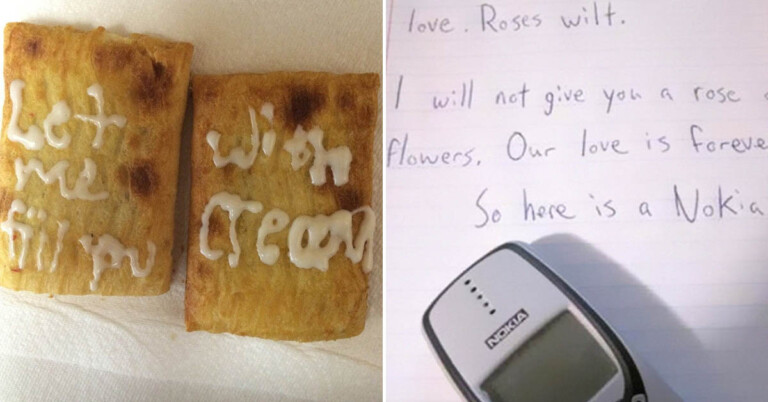 Let
me
fill you
with
cream
love. Roses wilt.
I will not give you a rose
flowers. Our love is foreve
So here is a Nokia
NOKIA